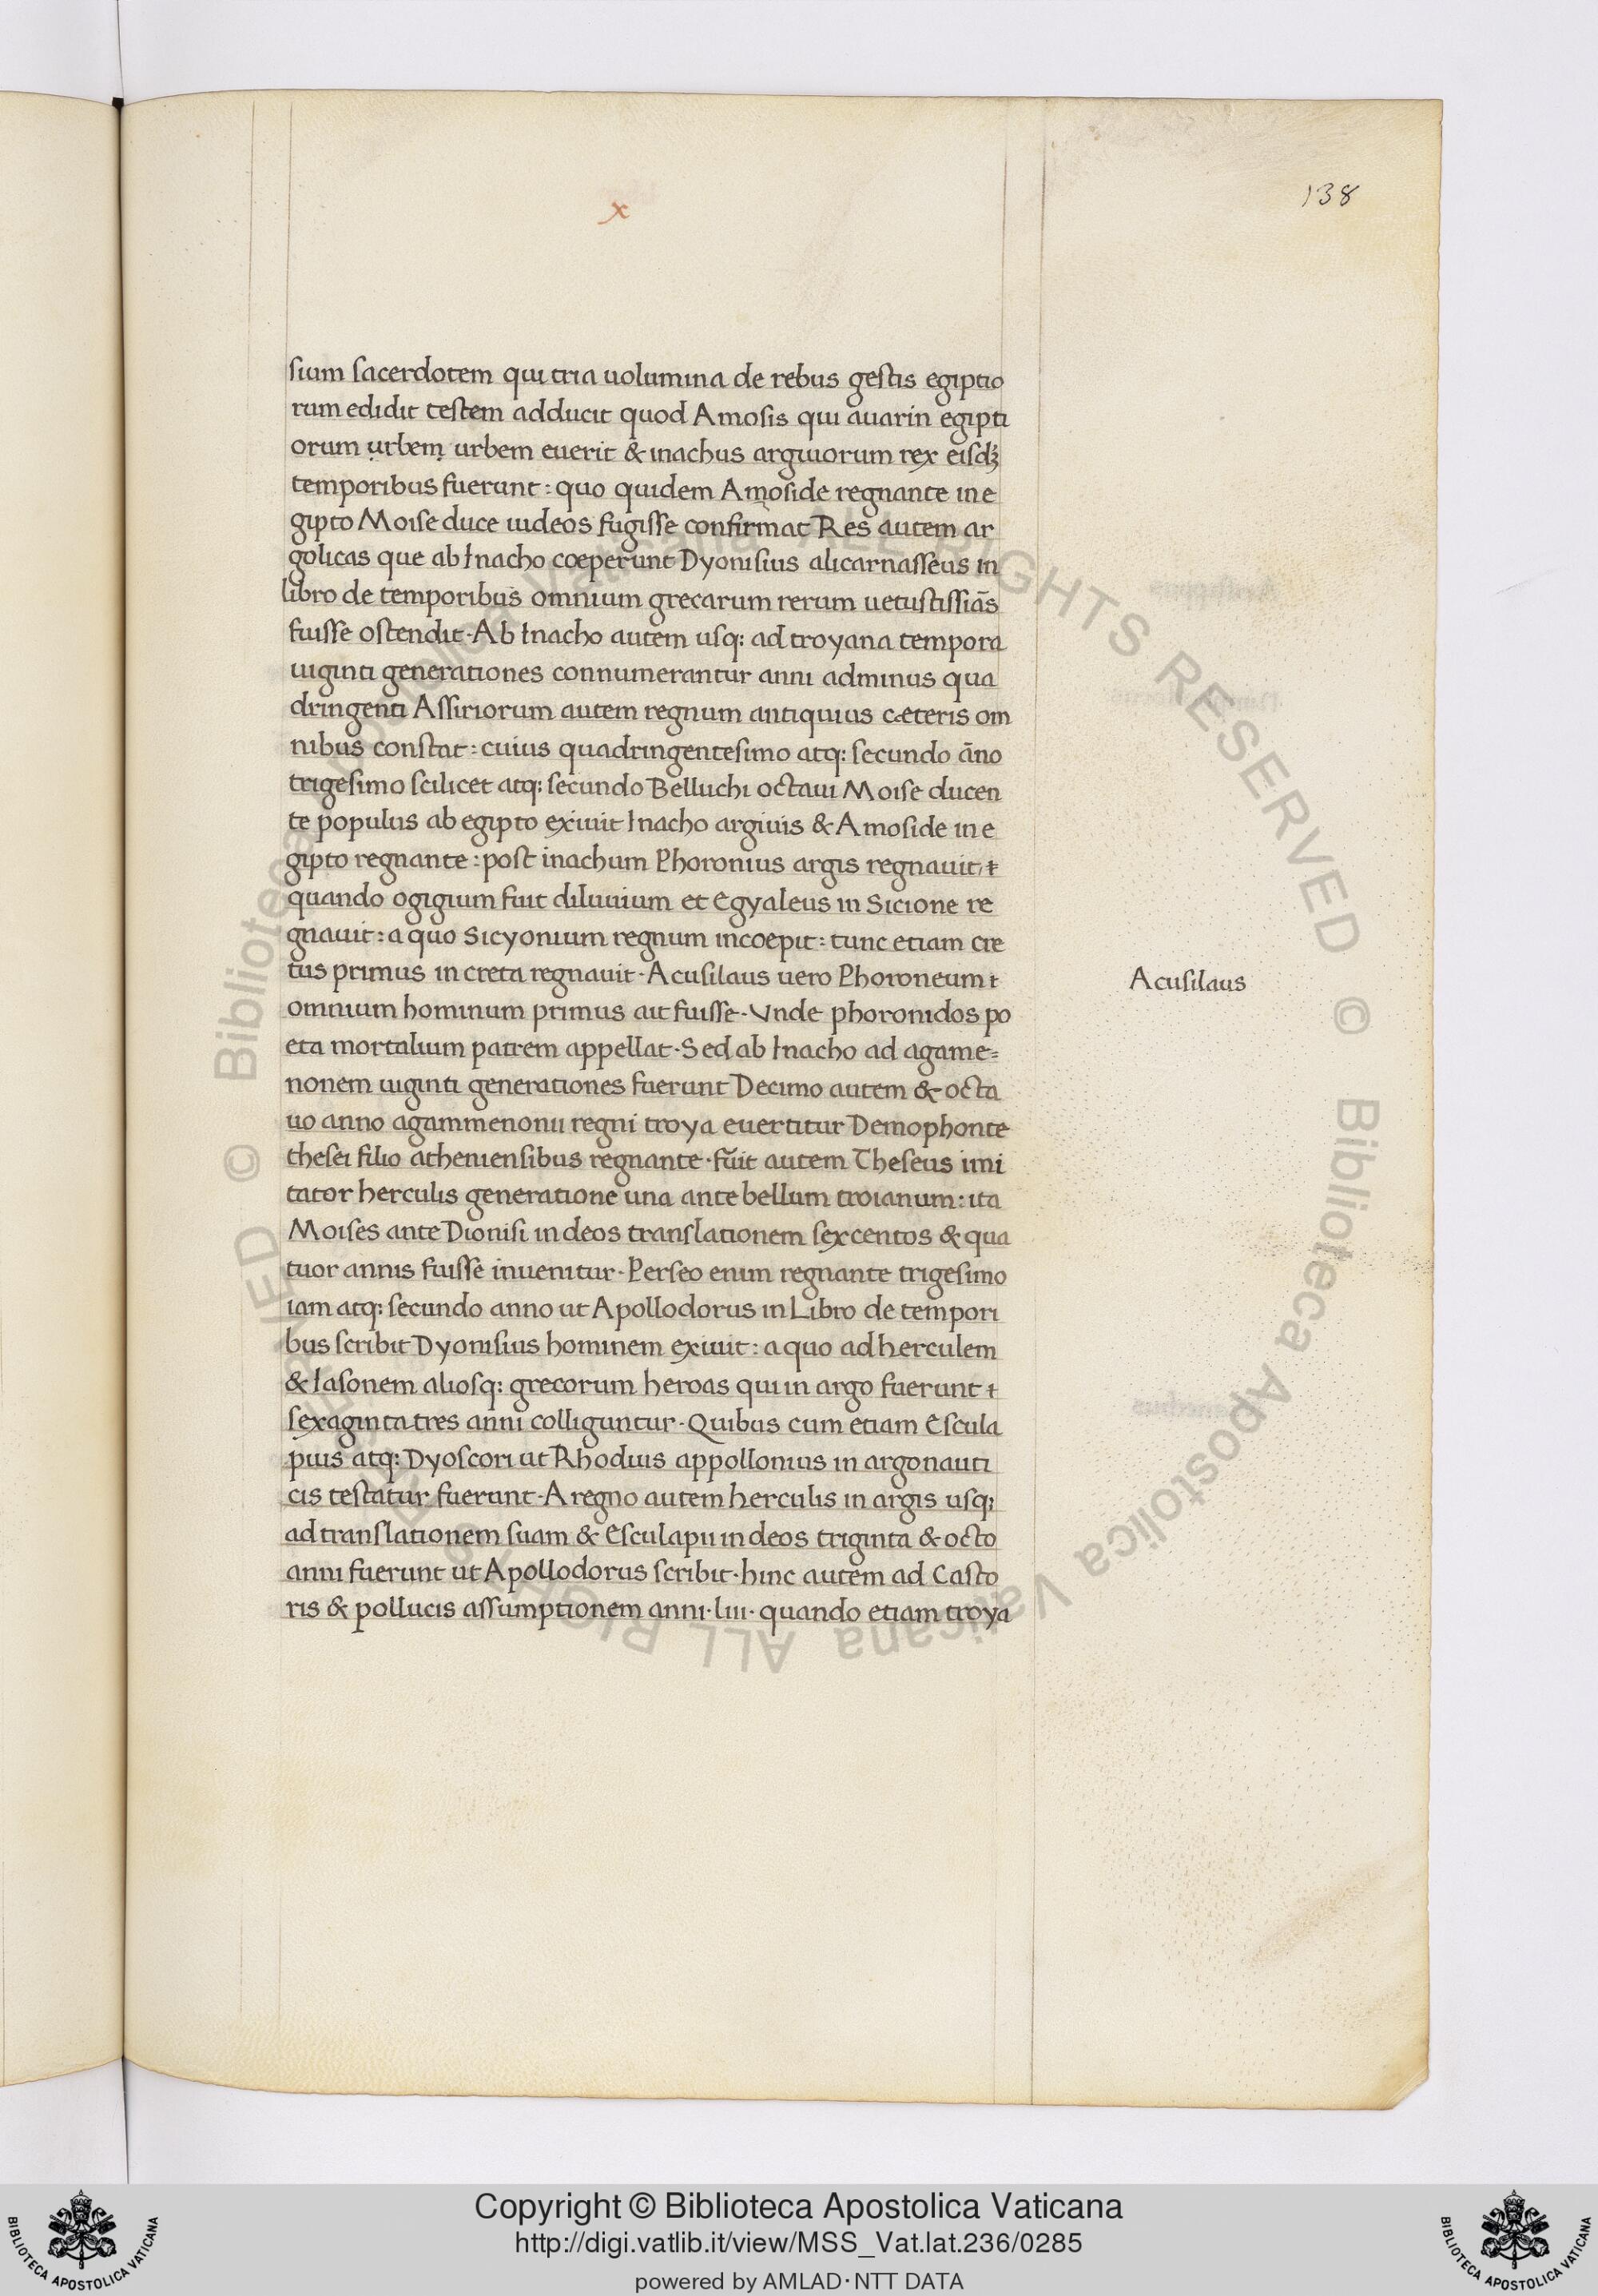 138
x
sium sacerdotem qui tria uolumina de rebus gestis egiptio
rum edidit testem adducit quod Amosis qui auarin egipti
orum urbem urbem euerit & inachus argiuorum rex eisdꝫ
temporibus fuerunt: quo quidem Amoside regnante in e
gipto Moise duce iudeos fugisse confirmat Res autem ar
golicas que ab Inacho coeperunt Dyonisius alicarnasseus in
libro de temporibus omnium grecarum rerum uetustissiās
fuisse ostendit· Ab Inacho autem usq: ad troyana tempora
uiginti generationes connumerantur anni adminus qua
dringenti Assiriorum autem regnum antiquius cęteris om
nibus constat: cuius quadringentesimo atq: secundo āno
trigesimo scilicet atq: secundo Belluchi octaui Moise ducen
te populus ab egipto exiuit Inacho argiuis & Amoside in e
gipto regnante: post inachum Phoronius argis regnauit,
quando ogigium fuit diluuium et Egyaleus in Sicione re
gnauit: a quo Sicyonium regnum incoepit: tunc etiam cre
tus primus in creta regnauit· Acusilaus uero Phoroneum
Acusilaus
omnium hominum primus ait fuisse· Vnde phoronidos po
eta mortalium patrem appellat· Sed ab Inacho ad agame=
nonem uiginti generationes fuerunt Decimo autem & octa
uo anno agammenonii regni troya euertitur Demophonte
thesei filio atheniensibus regnante· fuit autem Theseus imi
tator herculis generatione una ante bellum troianum: ita
Moises ante Dionisi in deos translationem sexcentos & qua
tuor annis fuisse inuenitur· Perseo enim regnante trigesimo
iam atq: secundo anno ut Apollodorus in Libro de tempori
bus scribit Dyonisius hominem exiuit: a quo ad herculem
& Iasonem aliosq: grecorum heroas qui in argo fuerunt
sexaginta tres anni colliguntur· Quibus cum etiam Escula
pius atq: Dyoscori ut Rhodius appollonius in argonauti
cis testatur fuerunt· A regno autem herculis in argis usq;
ad translationem suam & Esculapii in deos triginta & octo
anni fuerunt ut Apollodorus scribit· hinc autem ad Casto
ris & pollucis assumptionem anni· liii· quando etiam troya
© Biblioteca Apostolica Vaticana ALL RIGHTS RESERVED © Biblioteca Apostolica Vaticana ALL RIGHTS RESERVED
Copyright © Biblioteca Apostolica Vaticana
http://digi.vatlib.it/view/MSS_Vat.lat.236/0285
powered by AMLAD·NTT DATA
BIBLIOTECA APOSTOLICA VATICANA
BIBLIOTECA APOSTOLICA VATICANA